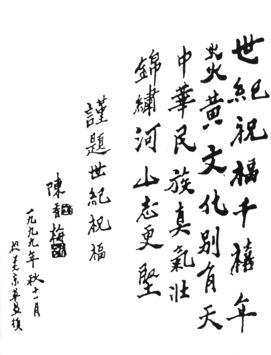 世紀祝福千禧年
炎黃文化別有天
中華民族真氣壯
錦繡河山志更堅
謹題世紀祝福
陳香梅
一九九九年秋十一月